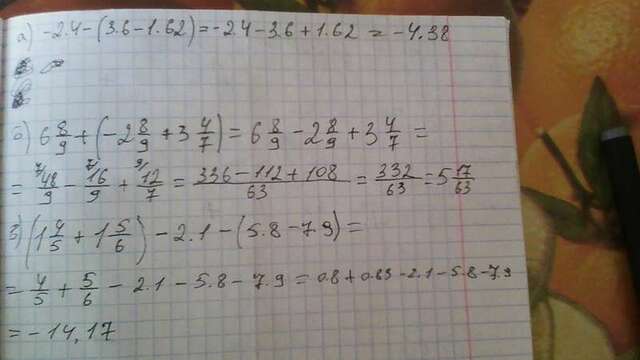 а) -2.4-(3.6-1.62)=-2.4-3.6+1.62 = -4.38
б) 6 8/9 + (-2 8/9 + 3 4/7) = 6 8/9 - 2 8/9 + 3 4/7 =
= 7/ 48/9 - 7/ 16/9 + 9/ 12/7 = 336-112+108/63 = 332/63 = 5 17/63
в) (1 4/5 + 1 5/6) - 2.1 - (5.8-7.9) =
= 4/5 + 5/6 - 2.1 - 5.8 - 7.9 = 0.8+0.83-2.1-5.8-7.9
= -14,17